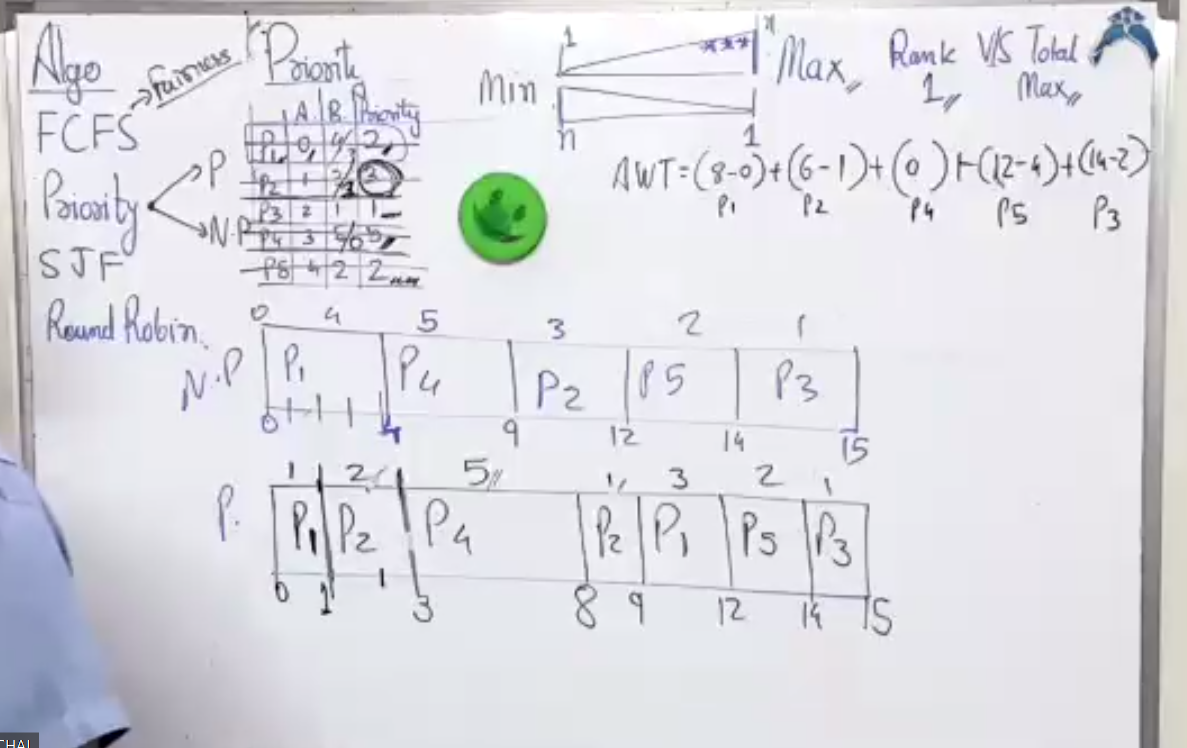 Algo
FCFS
Fairness
Priority
P
N.P
SJF
Round Robin.
Priority
A. B. Priority
P1 0, 4/3 2,
P2 1 3/1 3
P3 2 1 1
P4 3 5/0 5,
P5 4 2 2
Min 1 n
n 1 Max
Rank V/S Total
1 Max
AWT=(8-0)+(6-1)+(0)+(12-4)+(14-2)
P1 P2 P4 P5 P3
0 4 5 3 2 1
N.P P1 P4 P2 P5 P3
0 4 9 12 14 15
1 2 5 1 3 2 1
P. P1 P2 P4 P2 P1 P5 P3
0 1 3 8 9 12 14 15